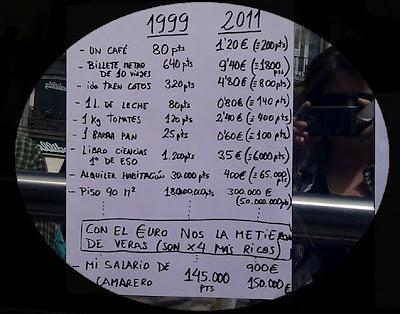 1999 2011
- UN CAFÉ 80 pts 1'20 € (=200 pts)
- BILLETE METRO DE 10 VIAJES 640 pts 9'40 € (=1800 pts)
- ida TREN COTOS 320 pts 4'80 € (=800 pts)
- 1 L. DE LECHE 80 pts 0'80 € (=140 pts)
- 1 kg TOMATES 120 pts 2'40 € (=400 pts)
- 1 BARRA PAN 25 pts 0'60 € (=100 pts)
- LIBRO CIENCIAS 1º DE ESO 1.200 pts 35 € (=6000 pts)
- ALQUILER HABITACIÓN 30.000 pts 400 € (=65.000 pts)
- PISO 90 m² 18.000.000 pts 300.000 € (50.000.000 pts)
CON EL €URO NOS LA METIERON
DE VERAS (SON x4 MÁS RICOS)
- MI SALARIO DE CAMARERO 145.000 PTS 900 € 150.000